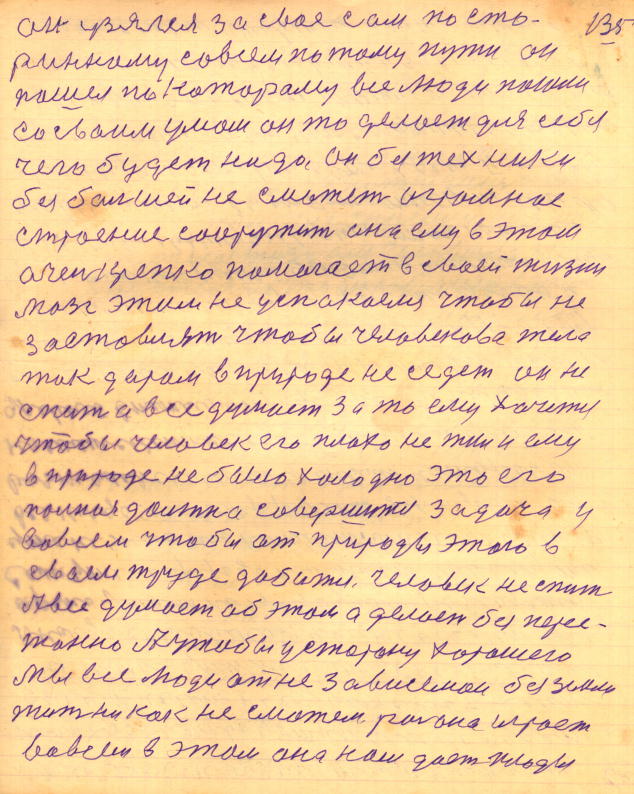 135
он узялся за свое сам по сто-
ринному совсем потому пути он
пошел по которому все люди пошли
со своим умом он то делает для себя
чего будет надо. он без техники
без балшей не сможет огромное
строение сооружит она ему в этом
очен крепко помогает в своей жизни
мозг этим не успакоелся чтобы не
заставлят чтобы человекова тела
так даром в природе не седет он не
спит а все думает за то ему хочится
чтобы человек его плохо не жил и ему
в природе не было холодно это его
полная должна совершится задача у
вовсем чтобы от природы этого в
своем труде добится. человек не спит
А все думает об этом а делает без перес-
танно А чтобы у сторону хорошего
мы все люди от не зависемои без земли
жит никак не сможем она играет
вовсем в этом она нам дает плоды